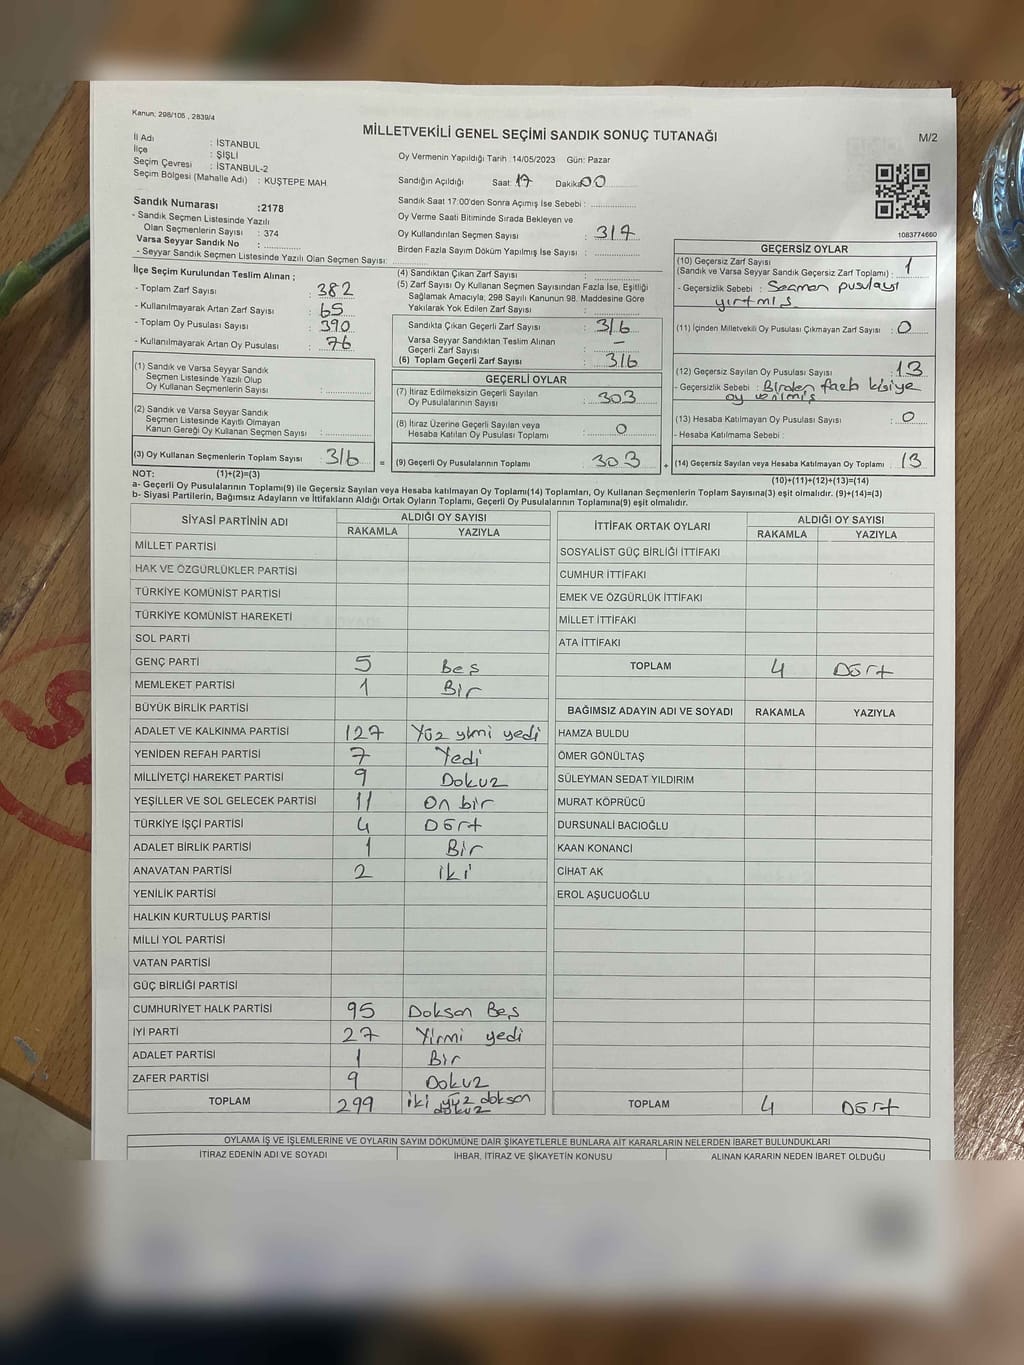 Kanun: 298/105 , 2839/4
MİLLETVEKİLİ GENEL SEÇİMİ SANDIK SONUÇ TUTANAĞI
M/2
İl Adı : İSTANBUL
İlçe : ŞİŞLİ
Seçim Çevresi : İSTANBUL-2
Seçim Bölgesi (Mahalle Adı) : KUŞTEPE MAH
Oy Vermenin Yapıldığı Tarih :14/05/2023 Gün: Pazar
Sandığın Açıldığı Saat: 17 Dakika: 00
Sandık Saat 17:00'den Sonra Açımış İse Sebebi :
Oy Verme Saati Bitiminde Sırada Bekleyen ve
Oy Kullandırılan Seçmen Sayısı : 317
Birden Fazla Sayım Döküm Yapılmış İse Sayısı :
1083774660
Sandık Numarası :2178
- Sandık Seçmen Listesinde Yazılı
Olan Seçmenlerin Sayısı : 374
Varsa Seyyar Sandık No :
- Seyyar Sandık Seçmen Listesinde Yazılı Olan Seçmen Sayısı:
İlçe Seçim Kurulundan Teslim Alınan ;
- Toplam Zarf Sayısı : 382
- Kullanılmayarak Artan Zarf Sayısı : 65
- Toplam Oy Pusulası Sayısı : 390
- Kullanılmayarak Artan Oy Pusulası : 76
(1) Sandık ve Varsa Seyyar Sandık
Seçmen Listesinde Yazılı Olup
Oy Kullanan Seçmenlerin Sayısı :
(2) Sandık ve Varsa Seyyar Sandık
Seçmen Listesinde Kayıtlı Olmayan
Kanun Gereği Oy Kullanan Seçmen Sayısı :
(3) Oy Kullanan Seçmenlerin Toplam Sayısı : 316
(4) Sandıktan Çıkan Zarf Sayısı :
(5) Zarf Sayısı Oy Kullanan Seçmen Sayısından Fazla İse, Eşitliği
Sağlamak Amacıyla; 298 Sayılı Kanunun 98. Maddesine Göre
Yakılarak Yok Edilen Zarf Sayısı :
Sandıkta Çıkan Geçerli Zarf Sayısı : 316
Varsa Seyyar Sandıktan Teslim Alınan
Geçerli Zarf Sayısı : -
(6) Toplam Geçerli Zarf Sayısı : 316
GEÇERLİ OYLAR
(7) İtiraz Edilmeksizin Geçerli Sayılan
Oy Pusulalarının Sayısı : 303
(8) İtiraz Üzerine Geçerli Sayılan veya
Hesaba Katılan Oy Pusulası Toplamı : 0
= (9) Geçerli Oy Pusulalarının Toplamı : 303
GEÇERSİZ OYLAR
(10) Geçersiz Zarf Sayısı
(Sandık ve Varsa Seyyar Sandık Geçersiz Zarf Toplamı) : 1
- Geçersizlik Sebebi : Seçmen pusulayı
yırtmış
(11) İçinden Milletvekili Oy Pusulası Çıkmayan Zarf Sayısı : 0
(12) Geçersiz Sayılan Oy Pusulası Sayısı : 13
- Geçersizlik Sebebi : Birden fazla kişiye
oy verilmiş
(13) Hesaba Katılmayan Oy Pusulası Sayısı : 0
- Hesaba Katılmama Sebebi :
+ (14) Geçersiz Sayılan veya Hesaba Katılmayan Oy Toplamı : 13
NOT: (1)+(2)=(3) (10)+(11)+(12)+(13)=(14)
a- Geçerli Oy Pusulalarının Toplamı(9) ile Geçersiz Sayılan veya Hesaba katılmayan Oy Toplamı(14) Toplamları, Oy Kullanan Seçmenlerin Toplam Sayısına(3) eşit olmalıdır. (9)+(14)=(3)
b- Siyasi Partilerin, Bağımsız Adayların ve İttifakların Aldığı Ortak Oyların Toplamı, Geçerli Oy Pusulalarının Toplamına(9) eşit olmalıdır.
SİYASİ PARTİNİN ADI ALDIĞI OY SAYISI
RAKAMLA YAZIYLA
MİLLET PARTİSİ
HAK VE ÖZGÜRLÜKLER PARTİSİ
TÜRKİYE KOMÜNİST PARTİSİ
TÜRKİYE KOMÜNİST HAREKETİ
SOL PARTİ
GENÇ PARTİ 5 Beş
MEMLEKET PARTİSİ 1 Bir
BÜYÜK BİRLİK PARTİSİ
ADALET VE KALKINMA PARTİSİ 127 Yüz yirmi yedi
YENİDEN REFAH PARTİSİ 7 Yedi
MİLLİYETÇİ HAREKET PARTİSİ 9 Dokuz
YEŞİLLER VE SOL GELECEK PARTİSİ 11 On bir
TÜRKİYE İŞÇİ PARTİSİ 4 Dört
ADALET BİRLİK PARTİSİ 1 Bir
ANAVATAN PARTİSİ 2 iki
YENİLİK PARTİSİ
HALKIN KURTULUŞ PARTİSİ
MİLLİ YOL PARTİSİ
VATAN PARTİSİ
GÜÇ BİRLİĞİ PARTİSİ
CUMHURİYET HALK PARTİSİ 95 Doksan Beş
İYİ PARTİ 27 Yirmi yedi
ADALET PARTİSİ 1 Bir
ZAFER PARTİSİ 9 Dokuz
TOPLAM 299 iki yüz doksan
dokuz
İTTİFAK ORTAK OYLARI ALDIĞI OY SAYISI
RAKAMLA YAZIYLA
SOSYALİST GÜÇ BİRLİĞİ İTTİFAKI
CUMHUR İTTİFAKI
EMEK VE ÖZGÜRLÜK İTTİFAKI
MİLLET İTTİFAKI
ATA İTTİFAKI
TOPLAM 4 Dört
BAĞIMSIZ ADAYIN ADI VE SOYADI RAKAMLA YAZIYLA
HAMZA BULDU
ÖMER GÖNÜLTAŞ
SÜLEYMAN SEDAT YILDIRIM
MURAT KÖPRÜCÜ
DURSUNALİ BACIOĞLU
KAAN KONANCİ
CİHAT AK
EROL AŞUCUOĞLU
TOPLAM 4 Dört
OYLAMA İŞ VE İŞLEMLERİNE VE OYLARIN SAYIM DÖKÜMÜNE DAİR ŞİKAYETLERLE BUNLARA AİT KARARLARIN NELERDEN İBARET BULUNDUKLARI
İTİRAZ EDENİN ADI VE SOYADI İHBAR, İTİRAZ VE ŞİKAYETİN KONUSU ALINAN KARARIN NEDEN İBARET OLDUĞU